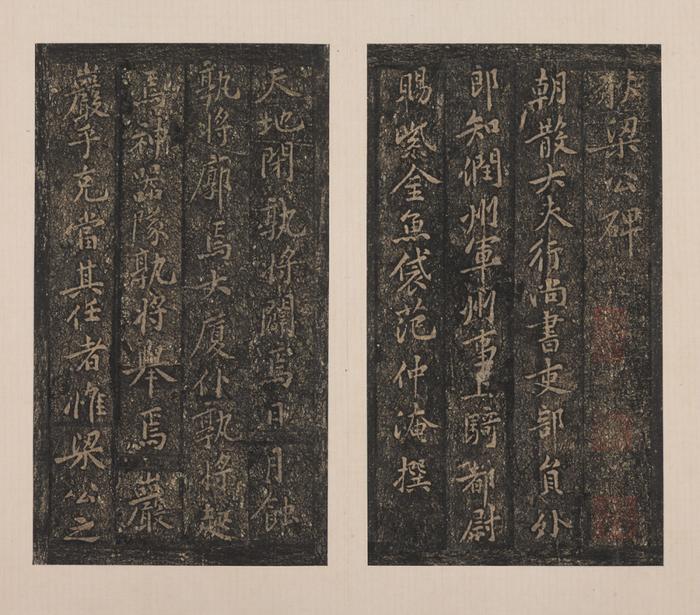 狄梁公碑
朝散大夫行尚書吏部員外
郎知潤州軍州事上騎都尉
賜紫金魚袋范仲淹撰
天地閉孰將闢焉日月蝕
孰將廓焉大厦仆孰將起
焉神器隊孰將舉焉巖
巖乎克當其任者惟梁公之